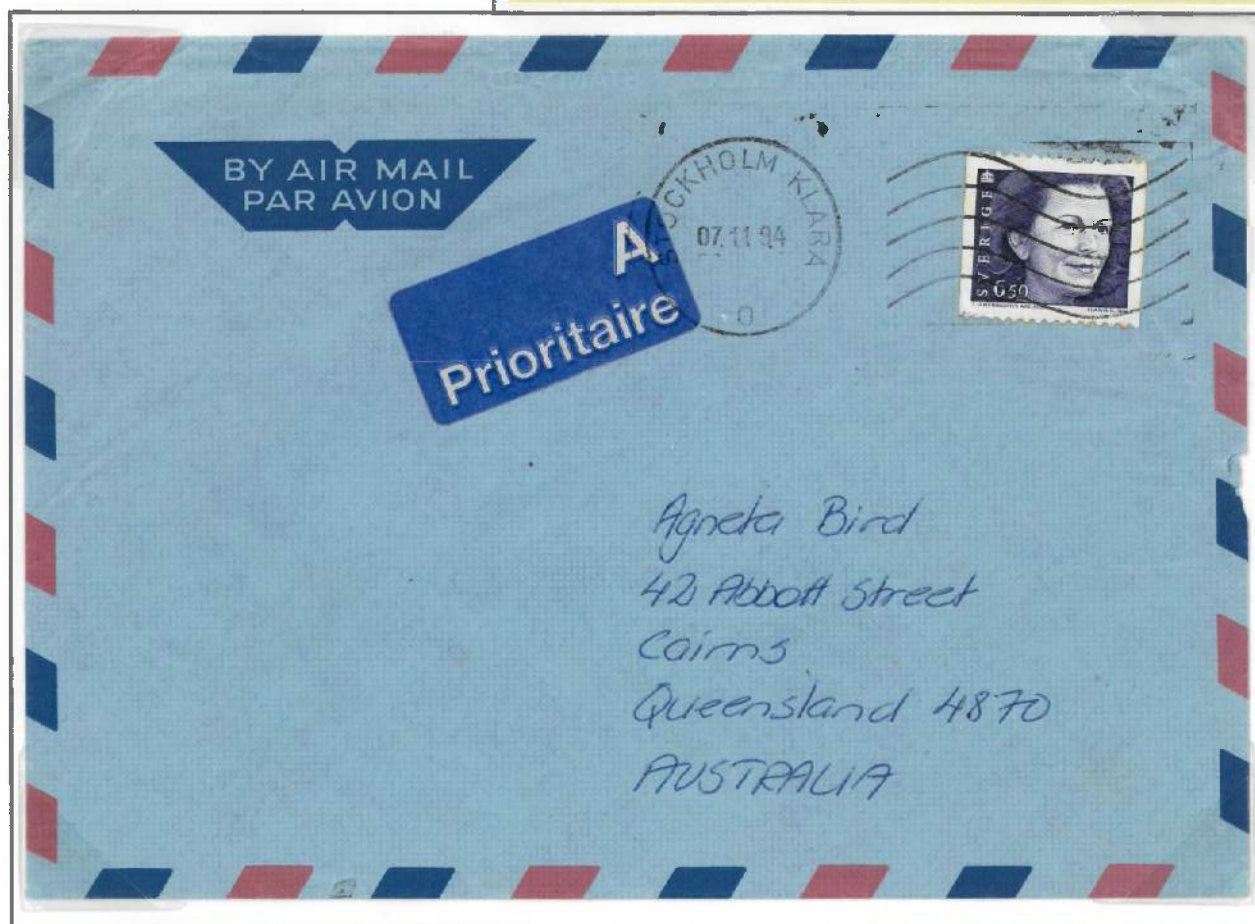 BY AIR MAIL
PAR AVION
A
Prioritaire
STOCKHOLM KLARA
07.11.94
0
SVERIGE
6.50
Agneta Bird
42 Abbott Street
Cairns
Queensland 4870
AUSTRALIA